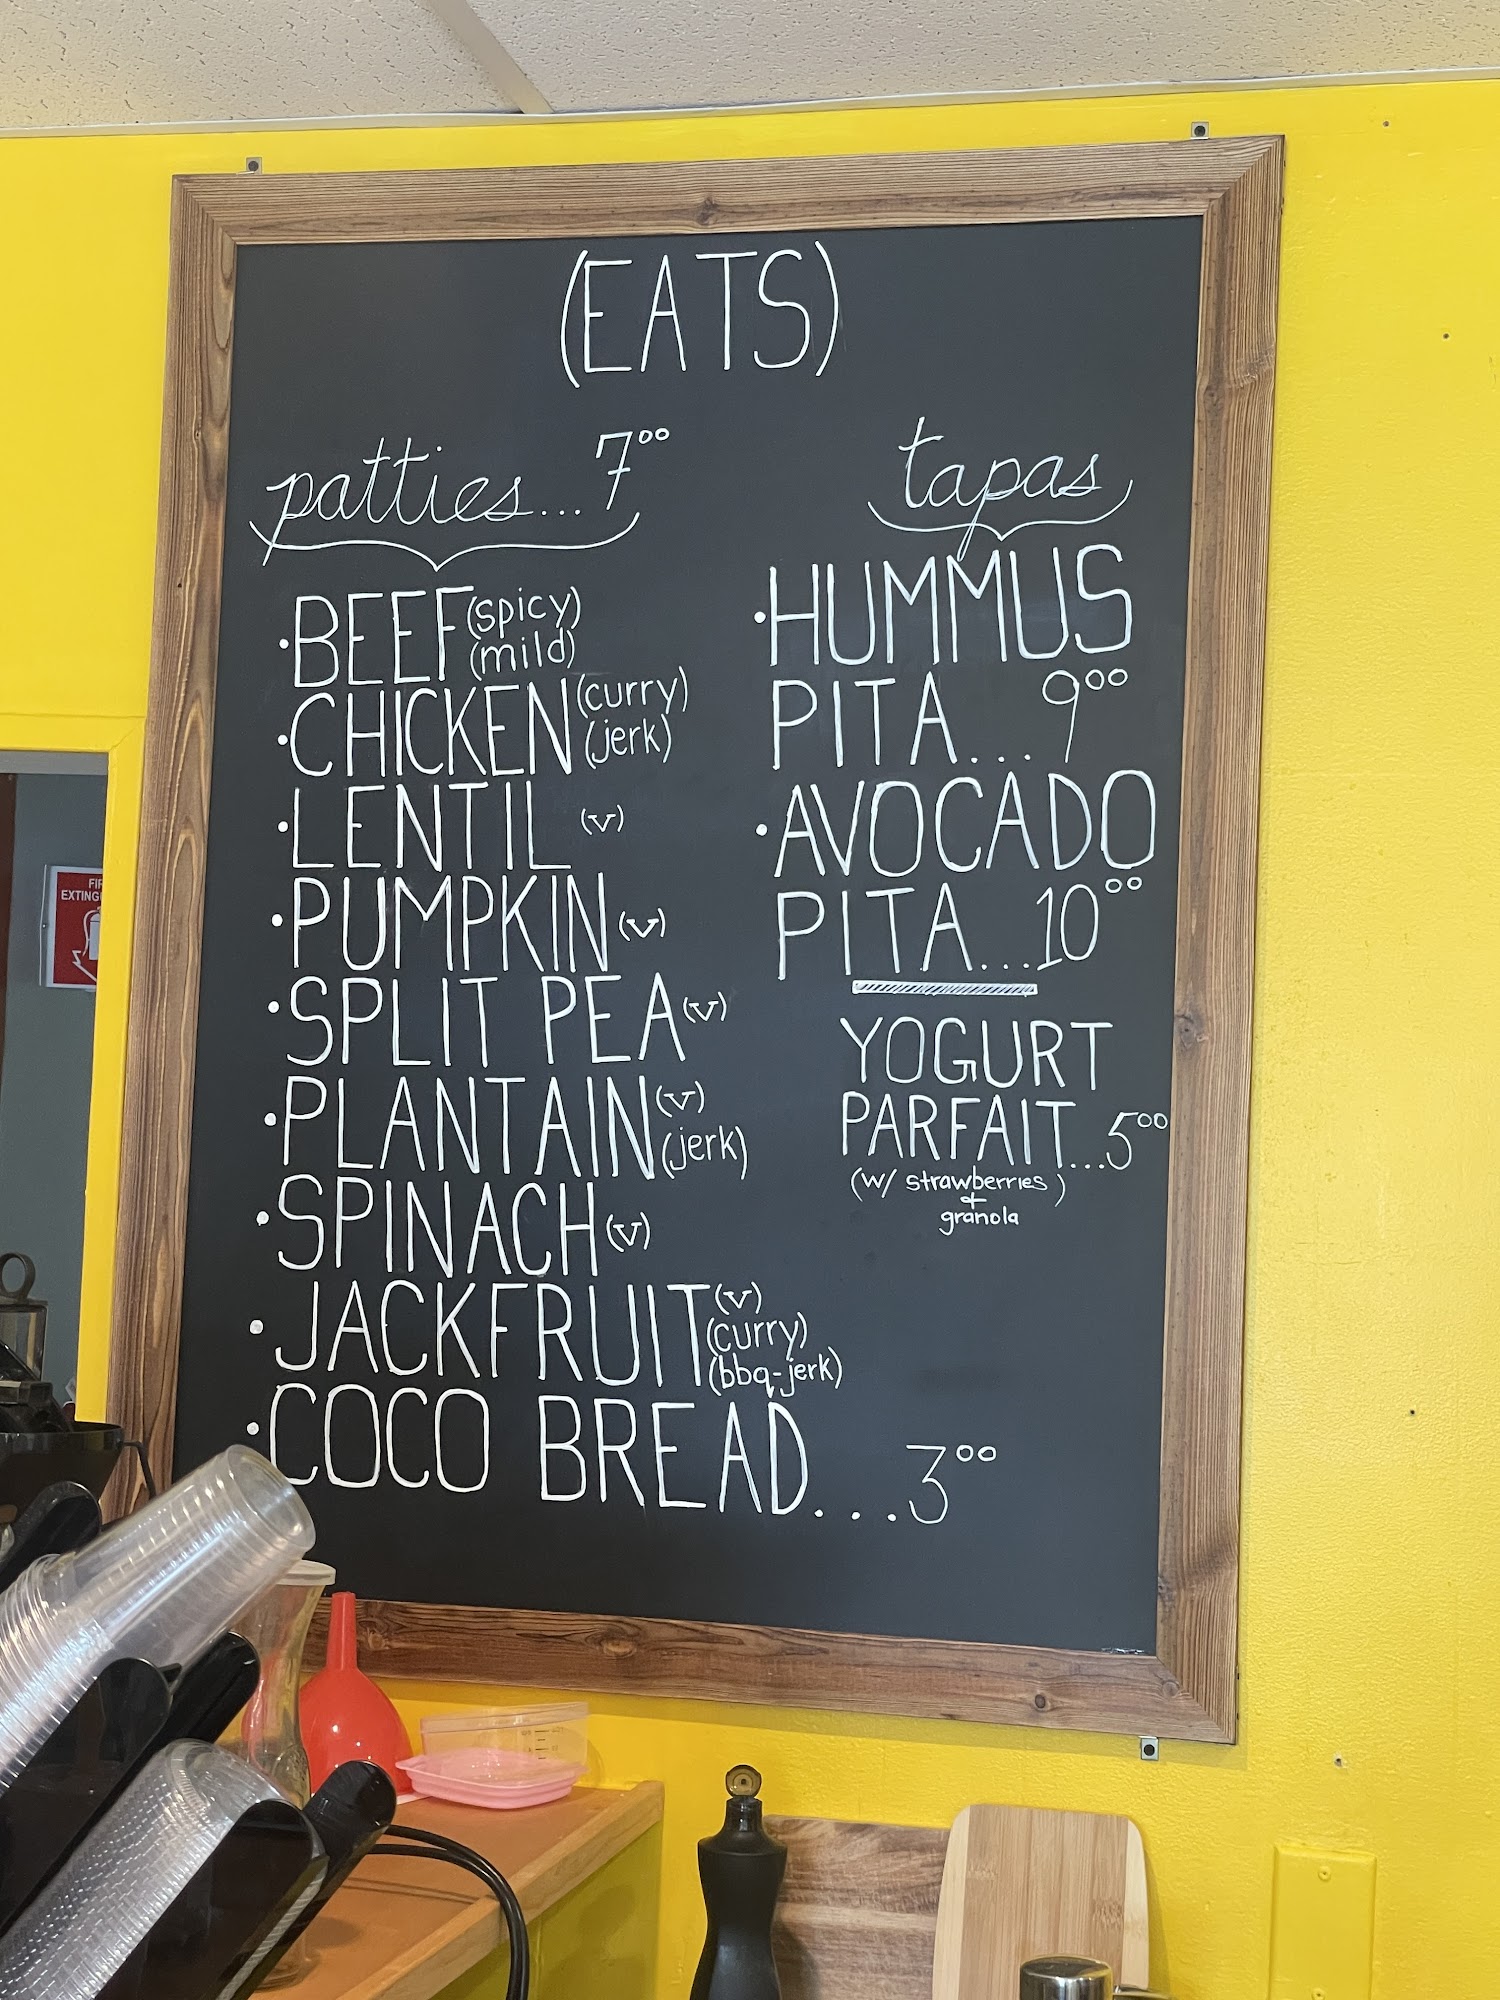 (EATS)
patties...7⁰⁰
•BEEF (spicy)
(mild)
•CHICKEN (curry)
(jerk)
•LENTIL (v)
•PUMPKIN (v)
•SPLIT PEA (v)
•PLANTAIN (v)
(jerk)
•SPINACH (v)
•JACKFRUIT (v)
(curry)
(bbq-jerk)
•COCO BREAD...3⁰⁰
tapas
•HUMMUS
PITA...9⁰⁰
•AVOCADO
PITA...10⁰⁰
YOGURT
PARFAIT...5⁰⁰
(w/ strawberries)
+
granola